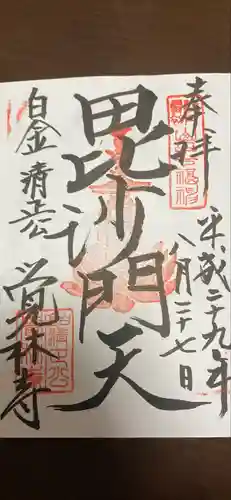 奉拝
平成二十九年
八月二十七日
毘沙門天
白金 清正公
覚林寺